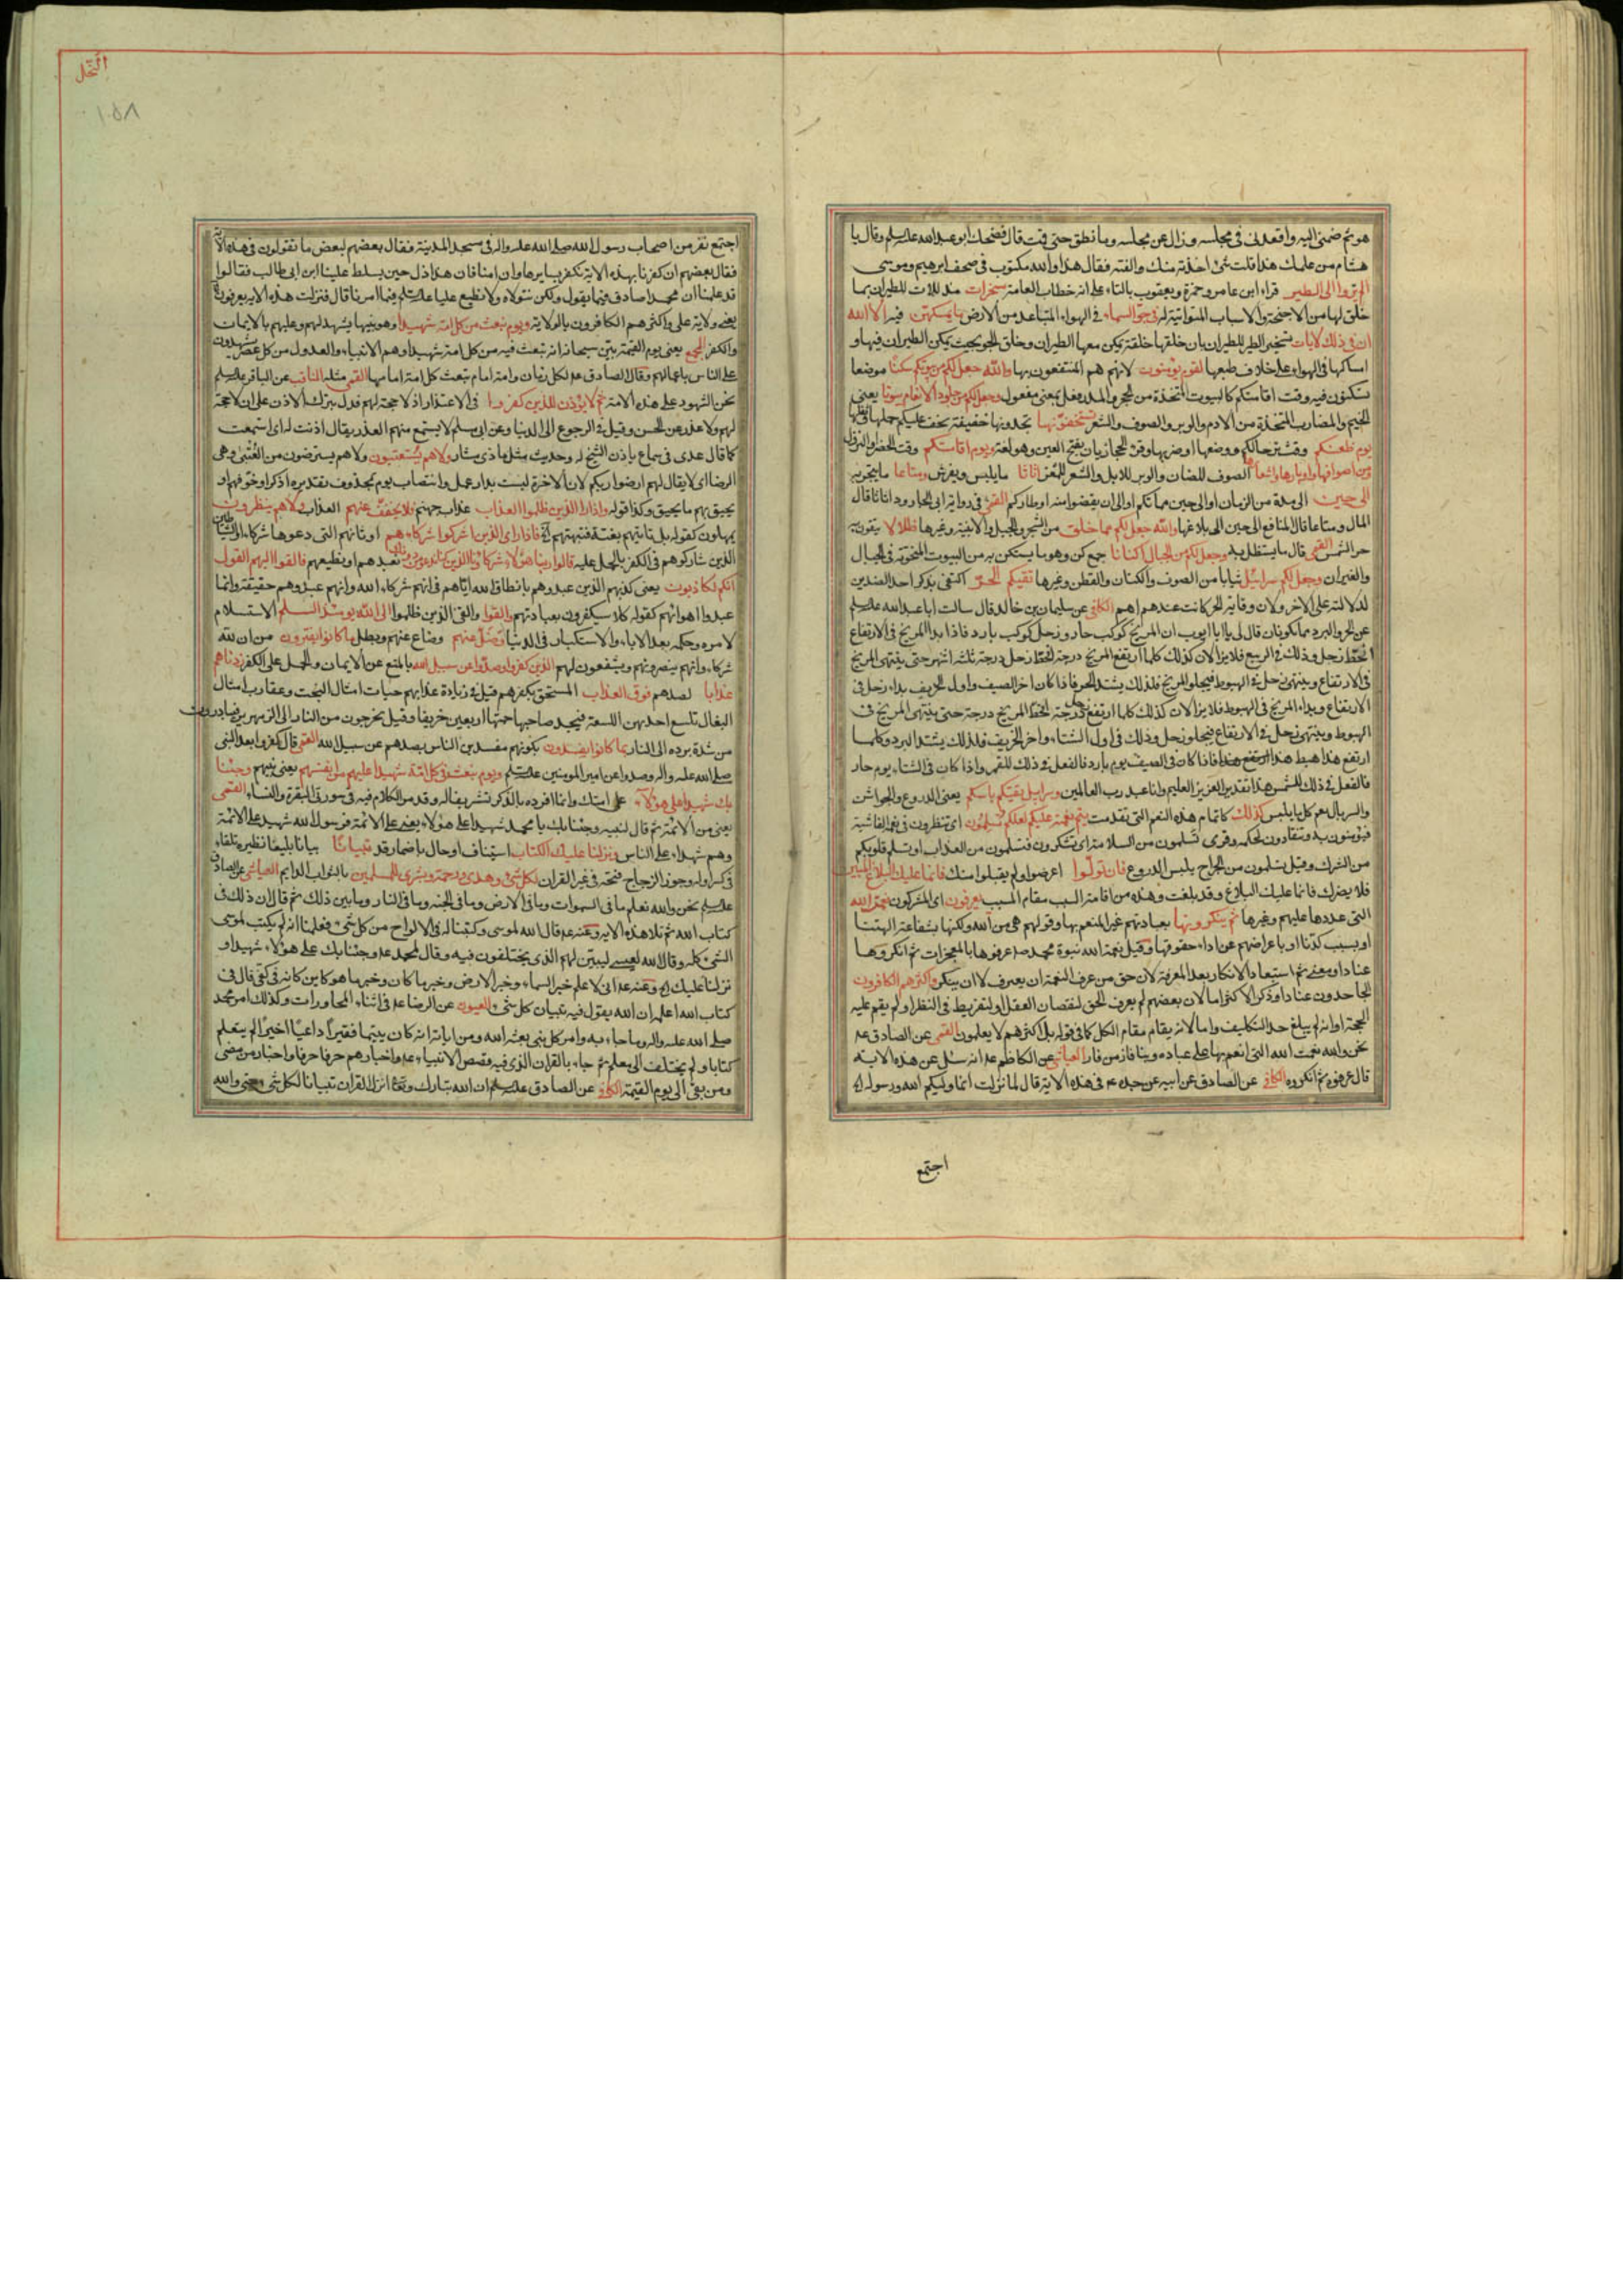 هو ثم ضمنى اليه واقعدنى فى مجلسه وزال عن مجلسه وما نطق حتى قمت قال فضحك ابو عبد الله عليه السلم وقال يا
هشام من علمك هذا قلت شئ اخذته منك والفته فقال هذا والله مكتوب فى صحف ابرهيم وموسى
الم يروا الى الطير قراء ابن عامر وحمزة ويعقوب بالتاء على انه خطاب العامة مسخرات مذللات للطيران بما
خلق لها من الاجنحة والاسباب المتواتية له فى جو السماء فى الهواء المتباعد من الارض ما يمسكهن فيه الا الله
ان فى ذلك لايات تسخير الطير للطيران بان خلقها خلقة يمكن معها الطيران وخلق الجو بحيث يمكن الطيران فيها و
امساكها فى الهواء على خلاف طبعها لقوم يؤمنون لانهم هم المنتفعون بها والله جعل لكم من بيوتكم سكنا موضعا
تسكنون فيه وقت اقامتكم كالبيوت المتخذة من الحجر والمدر فعل بمعنى مفعول وجعل لكم من جلود الانعام بيوتا يعنى
الخيم والمضارب المتخذة من الادم والوبر والصوف والشعر تستخفونها تجدونها خفيفة يخف عليكم حملها ونقلها
يوم ظعنكم وقت ترحالكم ووضعها او ضربها وقرء الحجازيان بفتح العين وهو لغة ويوم اقامتكم وقت الحضر او النزول
ومن اصوافها واوبارها واشعارها الصوف للضان والوبر للابل والشعر للمعز اثاثا ما يلبس ويفرش ومتاعا ما يتجر به
الى حين الى مدة من الزمان او الى حين مماتكم او الى ان يقضوا منه اوطاركم القمى فى رواية ابى الجارود اثاثا قال
المال ومتاعا قال المنافع الى حين الى بلاغها والله جعل لكم مما خلق من الشجر والجبل والابنية وغيرها ظلالا يتقون به
حر الشمس القمى قال ما يستظل به وجعل لكم من الجبال اكنانا جمع كن وهو ما يستكن به من البيوت المنحوتة فى الجبال
والغيران وجعل لكم سرابيل ثيابا من الصوف والكتان والقطن وغيرها تقيكم الحر اكتفى بذكر احد الضدين
لدلالته على الاخر ولان وقاية الحر كانت عندهم اهم الكافى عن سليمان بن خالد قال سالت ابا عبد الله عليه السلم
عن الحر والبرد مما يكونان قال لى يا ابا ايوب ان المريخ كوكب حار وزحل كوكب بارد فاذا بدا المريخ فى الارتفاع
انحط زحل وذلك فى الربيع فلا يزالان كذلك كلما ارتفع المريخ درجة انحط زحل درجة ثلثة اشهر حتى ينتهى المريخ
فى الارتفاع وينتهى زحل فى الهبوط فيجلو المريخ فلذلك يشتد الحر فاذا كان اخر الصيف واول الخريف بداء زحل فى
الارتفاع وبداء المريخ فى الهبوط فلا يزالان كذلك كلما ارتفع زحل درجة انحط المريخ درجة حتى ينتهى المريخ فى
الهبوط وينتهى زحل فى الارتفاع فيجلو زحل وذلك فى اول الشتاء واخر الخريف فلذلك يشتد البرد وكلما
ارتفع هذا هبط هذا وكلما هبط هذا ارتفع هذا فاذا كان فى الصيف يوم بارد فالفعل فى ذلك للقمر واذا كان فى الشتاء يوم حار
فالفعل فى ذلك للشمس هذا تقدير العزيز العليم وانا عبد رب العالمين وسرابيل تقيكم باسكم يعنى الدروع والجواشن
والسربال يعم كل ما يلبس كذلك كاتمام هذه النعم التى تقدمت يتم نعمته عليكم لعلكم تسلمون اى تنظرون فى نعم الفاشية
فتؤمنون به وتنقادون لحكمه وقرئ تسلمون من السلامة اى تشكرون فتسلمون من العذاب او تسلم قلوبكم
من الشرك وقيل تسلمون من الجراح بلبس الدروع فان تولوا اعرضوا ولم يقبلوا منك فانما عليك البلاغ المبين
فلا يضرك فانما عليك البلاغ وقد بلغت وهذه من اقامة السبب مقام المسبب يعرفون اى المشركون نعمة الله
التى عددها عليهم وغيرها ثم ينكرونها بعبادتهم غير المنعم بها وقولهم هى من الله ولكنها بشفاعة الهتنا
او بسبب كذا او باعراضهم عن اداء حقوقها وقيل نعمة الله نبوة محمد ص عرفوها بالمعجزات ثم انكروها
عنادا ومعنى ثم استبعاد الانكار بعد المعرفة لان حق من عرف النعمة ان يعترف لا ان ينكر واكثرهم الكافرون
الجاحدون عنادا وذكر الاكثر اما لان بعضهم لم يعرف الحق لنقصان العقل او لتفريط فى النظر او لم يقم عليه
الحجة او انه لم يبلغ حد التكليف واما لانه يقام مقام الكل كما فى قوله بل اكثرهم لا يعلمون القمى عن الصادق عم
نحن والله نعمت الله التى انعم بها على عباده وبنا فاز من فاز العياشى عن الكاظم عم انه سئل عن هذه الاية
قال عرفوه ثم انكروه الكافى عن الصادق عن ابيه عن جده عم فى هذه الاية قال لما نزلت انما وليكم الله ورسوله الاية
اجتمع
النحل
١٠٥٨
اجتمع نفر من اصحاب رسول الله صلى الله عليه واله فى مسجد المدينة فقال بعضهم لبعض ما تقولون فى هذه الاية
فقال بعضهم ان كفرنا بهذه الاية نكفر بسايرها وان امنا فان هذا ذل حين يسلط علينا ابن ابى طالب فقالوا
قد علمنا ان محمدا صادق فيما يقول ولكن نتولاه ولا نطيع عليا عليه السلم فيما امرنا قال فنزلت هذه الاية يعرفون
يعنى ولاية على واكثرهم الكافرون بالولاية ويوم نبعث من كل امة شهيدا وهو نبيها يشهد لهم وعليهم بالايمان
والكفر المجمع يعنى يوم القيمة بين سبحانه انه يبعث فيه من كل امة شهيدا وهم الانبياء والعدول من كل عصر يشهدون
على الناس باعمالهم وقال الصادق عم لكل زمان وامة امام تبعث كل امة امامها القمى مثله المناقب عن الباقر عليه السلم
نحن الشهود على هذه الامة ثم لا يؤذن للذين كفروا فى الاعتذار اذ لا حجة لهم فدل بترك الاذن على ان لا حجة
لهم ولا عذر عن الحسن وقيل فى الرجوع الى الدنيا وعن ابى مسلم لا يستمع منهم العذر يقال اذنت له اى استمعت
كما قال عدى فى سماع ياذن الشيخ له وحديث مثل ماذى مشار ولا هم يستعتبون ولا هم يسترضون من العتبى وهى
الرضا اى لا يقال لهم ارضوا ربكم لان الاخرة ليست بدار عمل وانتصاب يوم بمحذوف تقديره اذكر او خوفهم او
يحيق بهم ما يحيق وكذا قوله واذا راى الذين ظلموا العذاب عذاب جهنم فلا يخفف عنهم العذاب ولا هم ينظرون
يمهلون كقوله بل تاتيهم بغتة فتبهتهم الاية واذا راى الذين اشركوا شركاءهم اوثانهم التى دعوها شركاء او الشياطين
الذين شاركوهم فى الكفر بالحمل عليه قالوا ربنا هؤلاء شركاؤنا الذين كنا ندعو من دونك نعبدهم او نطيعهم فالقوا اليهم القول
انكم لكاذبون يعنى كذبهم الذين عبدوهم بانطاق الله اياهم فى انهم شركاء الله وانهم عبدوهم حقيقة وانما
عبدوا اهوائهم كقوله كلا سيكفرون بعبادتهم والقوا والقى الذين ظلموا الى الله يومئذ السلم الاستسلام
لامره وحكمه بعد الاباء والاستكبار فى الدنيا وضل عنهم وضاع عنهم وبطل ما كانوا يفترون من ان لله
شركاء وانهم ينصرونهم ويشفعون لهم الذين كفروا وصدوا عن سبيل الله بالمنع عن الايمان والحمل على الكفر زدناهم
عذابا لصدهم فوق العذاب المستحق بكفرهم قيل فى زيادة عذابهم حيات امثال البخت وعقارب امثال
البغال تلسع احديهن اللسعة فيجد صاحبها حمتها اربعين خريفا وقيل يخرجون من النار الى الزمهرير فيبادرون
من شدة برده الى النار بما كانوا يفسدون بكونهم مفسدين الناس بصدهم عن سبيل الله القمى قال كفروا بعد النبى
صلى الله عليه واله وصدوا عن امير المومنين عليه السلم ويوم نبعث فى كل امة شهيدا عليهم من انفسهم يعنى نبيهم وجئنا
بك شهيدا على هؤلاء على امتك وانما افرده بالذكر تشريفا له وقد مر الكلام فيه فى سورتى البقرة والنساء القمى
يعنى من الائمة ثم قال لنبيه وجئنا بك يا محمد شهيدا على هؤلاء يعنى على الائمة فرسول الله شهيد على الائمة
وهم شهداء على الناس ونزلنا عليك الكتاب استيناف او حال باضمار قد تبيانا بيانا بليغا نظيره تلقاء
فى كسر اوله وجوز الزجاج فتحه فى غير القران لكل شئ وهدى ورحمة وبشرى للمسلمين بالثواب الدايم العياشى عن الصادق
عليه السلم نحن والله نعلم ما فى السموات وما فى الارض وما فى الجنة وما فى النار وما بين ذلك ثم قال ان ذلك فى
كتاب الله ثم تلا هذه الاية وعنه عم قال الله لموسى وكتبنا له فى الالواح من كل شئ فعلمنا انه لم يكتب لموسى
الشئ كله وقال الله لعيسى ليبين لهم الذى يختلفون فيه وقال لمحمد عم وجئنا بك على هؤلاء شهيدا و
نزلنا عليك الاية وعنه عم انى لاعلم خبر السماء وخبر الارض وخبر ما كان وخبر ما هو كاين كانه فى كفى قال فى
كتاب الله اعلم ان الله يقول فيه تبيان كل شئ والعيون عن الرضا عم فى اثناء المحاورات وكذلك امر محمد
صلى الله عليه واله وما جاء به وامر كل نبى بعثه الله ومن اياته انه كان يتيما فقيرا داعيا اخيرا لم يتعلم
كتابا ولم يختلف الى معلم ثم جاء بالقران الذى فيه قصص الانبياء عم واخبارهم حرفا حرفا واخبار من مضى
ومن بقى الى يوم القيمة الكافى عن الصادق عليه السلم ان الله تبارك وتعالى انزل القران تبيانا لكل شئ حتى والله